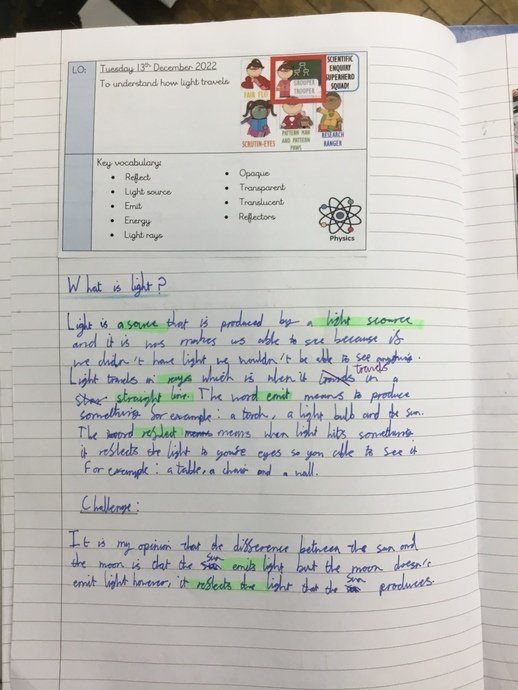 LO:
Tuesday 13th December 2022
To understand how light travels
FAIR FLO
SNOOPER TROOPER
SCIENTIFIC ENQUIRY SUPERHERO SQUAD!
SCRUTIN-EYES
PATTERN MAN AND PATTERN PAWS
RESEARCH RANGER
Key vocabulary:
• Reflect
• Light source
• Emit
• Energy
• Light rays
• Opaque
• Transparent
• Translucent
• Reflectors
Physics
What is light?
Light is a source that is produced by a light scource
and it is was makes us able to see because if
we didn't have light we wouldn't be able to see anything.
Light travels in rays which is when it travels in a
straight line. The word emit means to produce
something for example: a torch, a light bulb and the sun.
The word reflect means when light hits something
it reflects the light to youre eyes so you able to see it
For example: a table, a chair and a wall.
Challenge:
It is my opinion that the difference between the sun and
the moon is that the sun emits light but the moon doesn't
emit light however, it reflects the light that the sun produces.